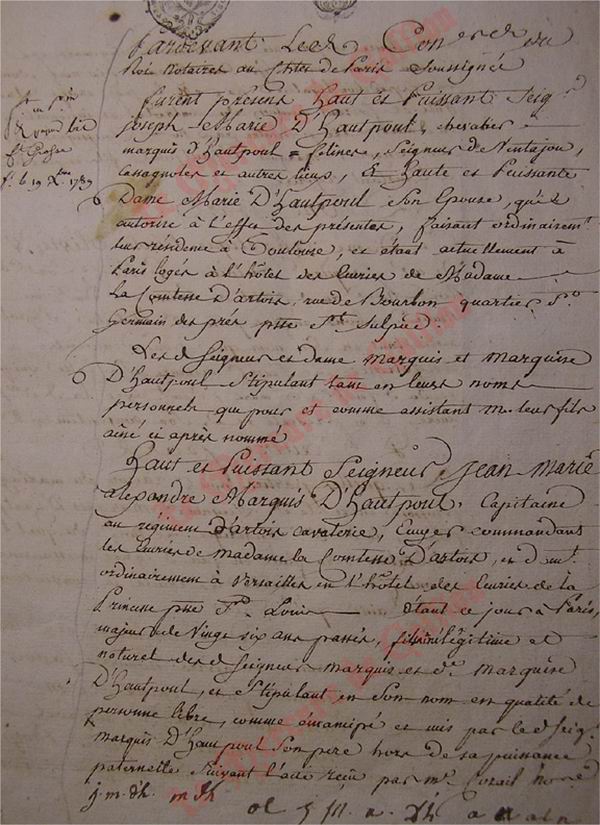 Pardevant Les Con
Notaires au de Paris Soussignés
furent présens Haut et Puissant Seigr
Joseph Marie D'Hautpoul, chevalier
marquis d'Hautpoul = felines, Seigneur de Ventajou,
Cassagnoles et autres lieux, & Haute et Puissante
Dame Marie D'Hautpoul Son Epouse, qu'il
autorise à L'effet des présentes, faisant ordinairemt
leur résidence à Toulouse, et étant actuellement à
Paris logés à L'hôtel des Ecuries de Madame
La Comtesse D'artois, rue de Bourbon quartier St
Germain des prés psse St Sulpice.
Les d Seigneur et dame marquis et marquise
D'Hautpoul Stipulant tant en leurs noms
personnels que pour et comme assistant M. leur fils
ainé ci après nommé
Haut et Puissant Seigneur Jean Marie
alexandre Marquis D'Hautpoul, Capitaine
au régiment D'artois cavalerie, Ecuyer commandant
les Ecuries de madame la Comtesse D'artois, et demt
ordinairement à Versailles en L'hôtel des Ecuries de la
Princesse psse St Louis étant ce jour à Paris,
majeur de Vingt six ans passés, fils légitime et
naturel des d Seigneur marquis et de marquise
D'Hautpoul, et Stipulant en Son nom en qualité de
personne libre, comme émancipé et mis par le d Seigr
marquis D'Hautpoul Son pere hors de sa puissance
paternelle Suivant l'acte reçu par me Corail
j.m.dh. m dh